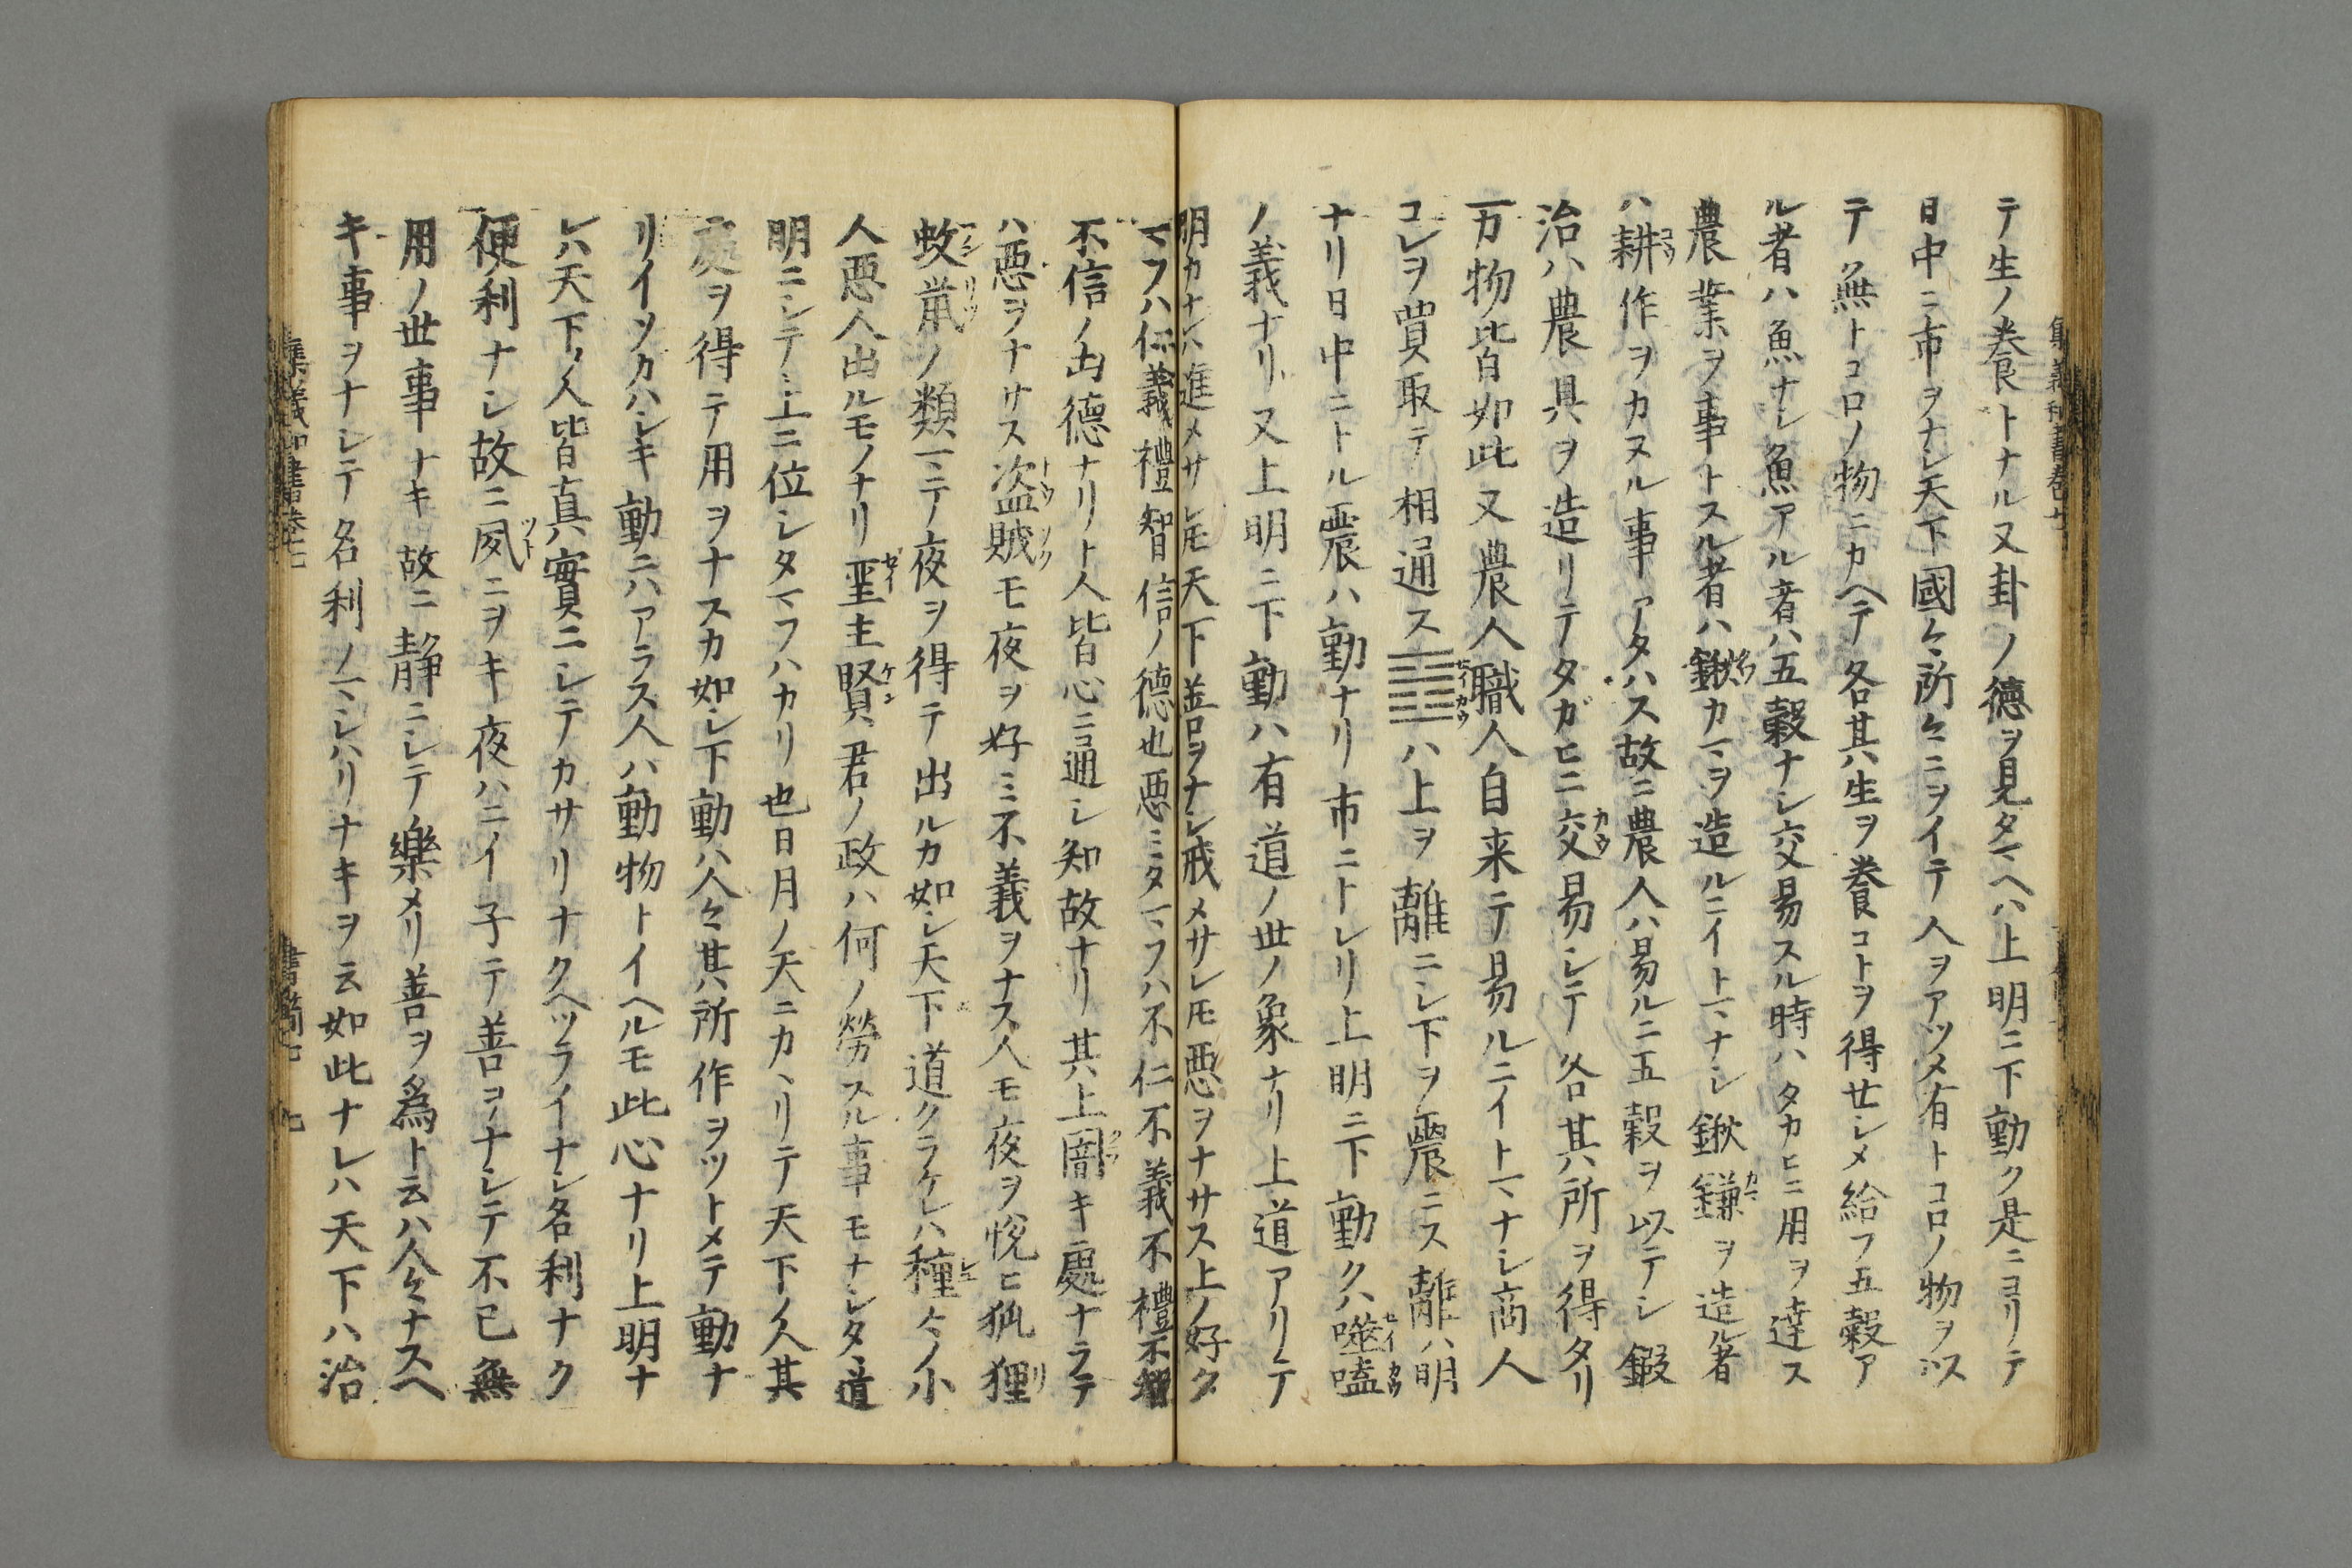 テ生ノ養トナル又卦ノ徳ヲ見タマヘハ上明ニ下動ク是ニヨリテ
日中ニ市ヲナシ天下國々所々ニヲイテ人ヲアツメ有トコロノ物ヲ以
テ無トコロノ物ニカヘテ各其生ヲ養コトヲ得セシメ給フ五穀ア
ル者ハ魚ナシ魚アル者ハ五穀ナシ交易スル時ハタカヒニ用ヲ達ス
農業ヲ事トスル者ハ鍬カマヲ造ルニイトマナシ鍬鎌ヲ造ル者
ハ耕作ヲカヌル事アタハス故ニ農人ハ易ルニ五穀ヲ以テシ鍛
治ハ農具ヲ造リテタガヒニ交易シテ各其所ヲ得タリ
万物皆如此又農人職人自来テ易ルニイトマナシ商人
コレヲ買取テ相通ス䷔ハ上ヲ離ニシ下ヲ震ニス離ハ明
ナリ日中ニトル震ハ動ナリ市ニトレリ上明ニ下動クハ噬嗑
ノ義ナリ又上明ニ下動ハ有道ノ世ノ象ナリ上道アリテ
明カナレハ進メサレ𪜈天下善ヲナシ戒メサレ𪜈悪ヲナサス上ノ好タ
マフハ仁義禮智信ノ徳也悪ミタマフハ不仁不義不禮不智
不信ノ凶徳ナリト人皆心ニ通シ知故ナリ其上闇キ處ナラテ
ハ悪ヲナサス盗賊モ夜ヲ好ミ不義ヲナス人モ夜ヲ悦ヒ狐狸
蚊䑕ノ類マテ夜ヲ得テ出ルカ如シ天下道クラケレハ種々ノ小
人悪人出ルモノナリ聖主賢君ノ政ハ何ノ勞スル事モナシタヽ道
明ニシテ上ニ位シタマフハカリ也日月ノ天ニカヽリテ天下ノ人其
處ヲ得テ用ヲナスカ如シ下動ハ人々其所作ヲツトメテ動ナ
リイソカハシキ動ニハアラス人ハ動物トイヘルモ此心ナリ上明ナ
レハ天下ノ人皆真實ニシテカサリナクヘツライナシ名利ナク
便利ナシ故ニ夙ニヲキ夜ハニイ子テ善ヲナシテ不已無
用ノ世事ナキ故ニ静ニシテ樂メリ善ヲ為ト云ハ人々ナスヘ
キ事ヲナシテ名利ノマシハリナキヲ云如此ナレハ天下ハ治